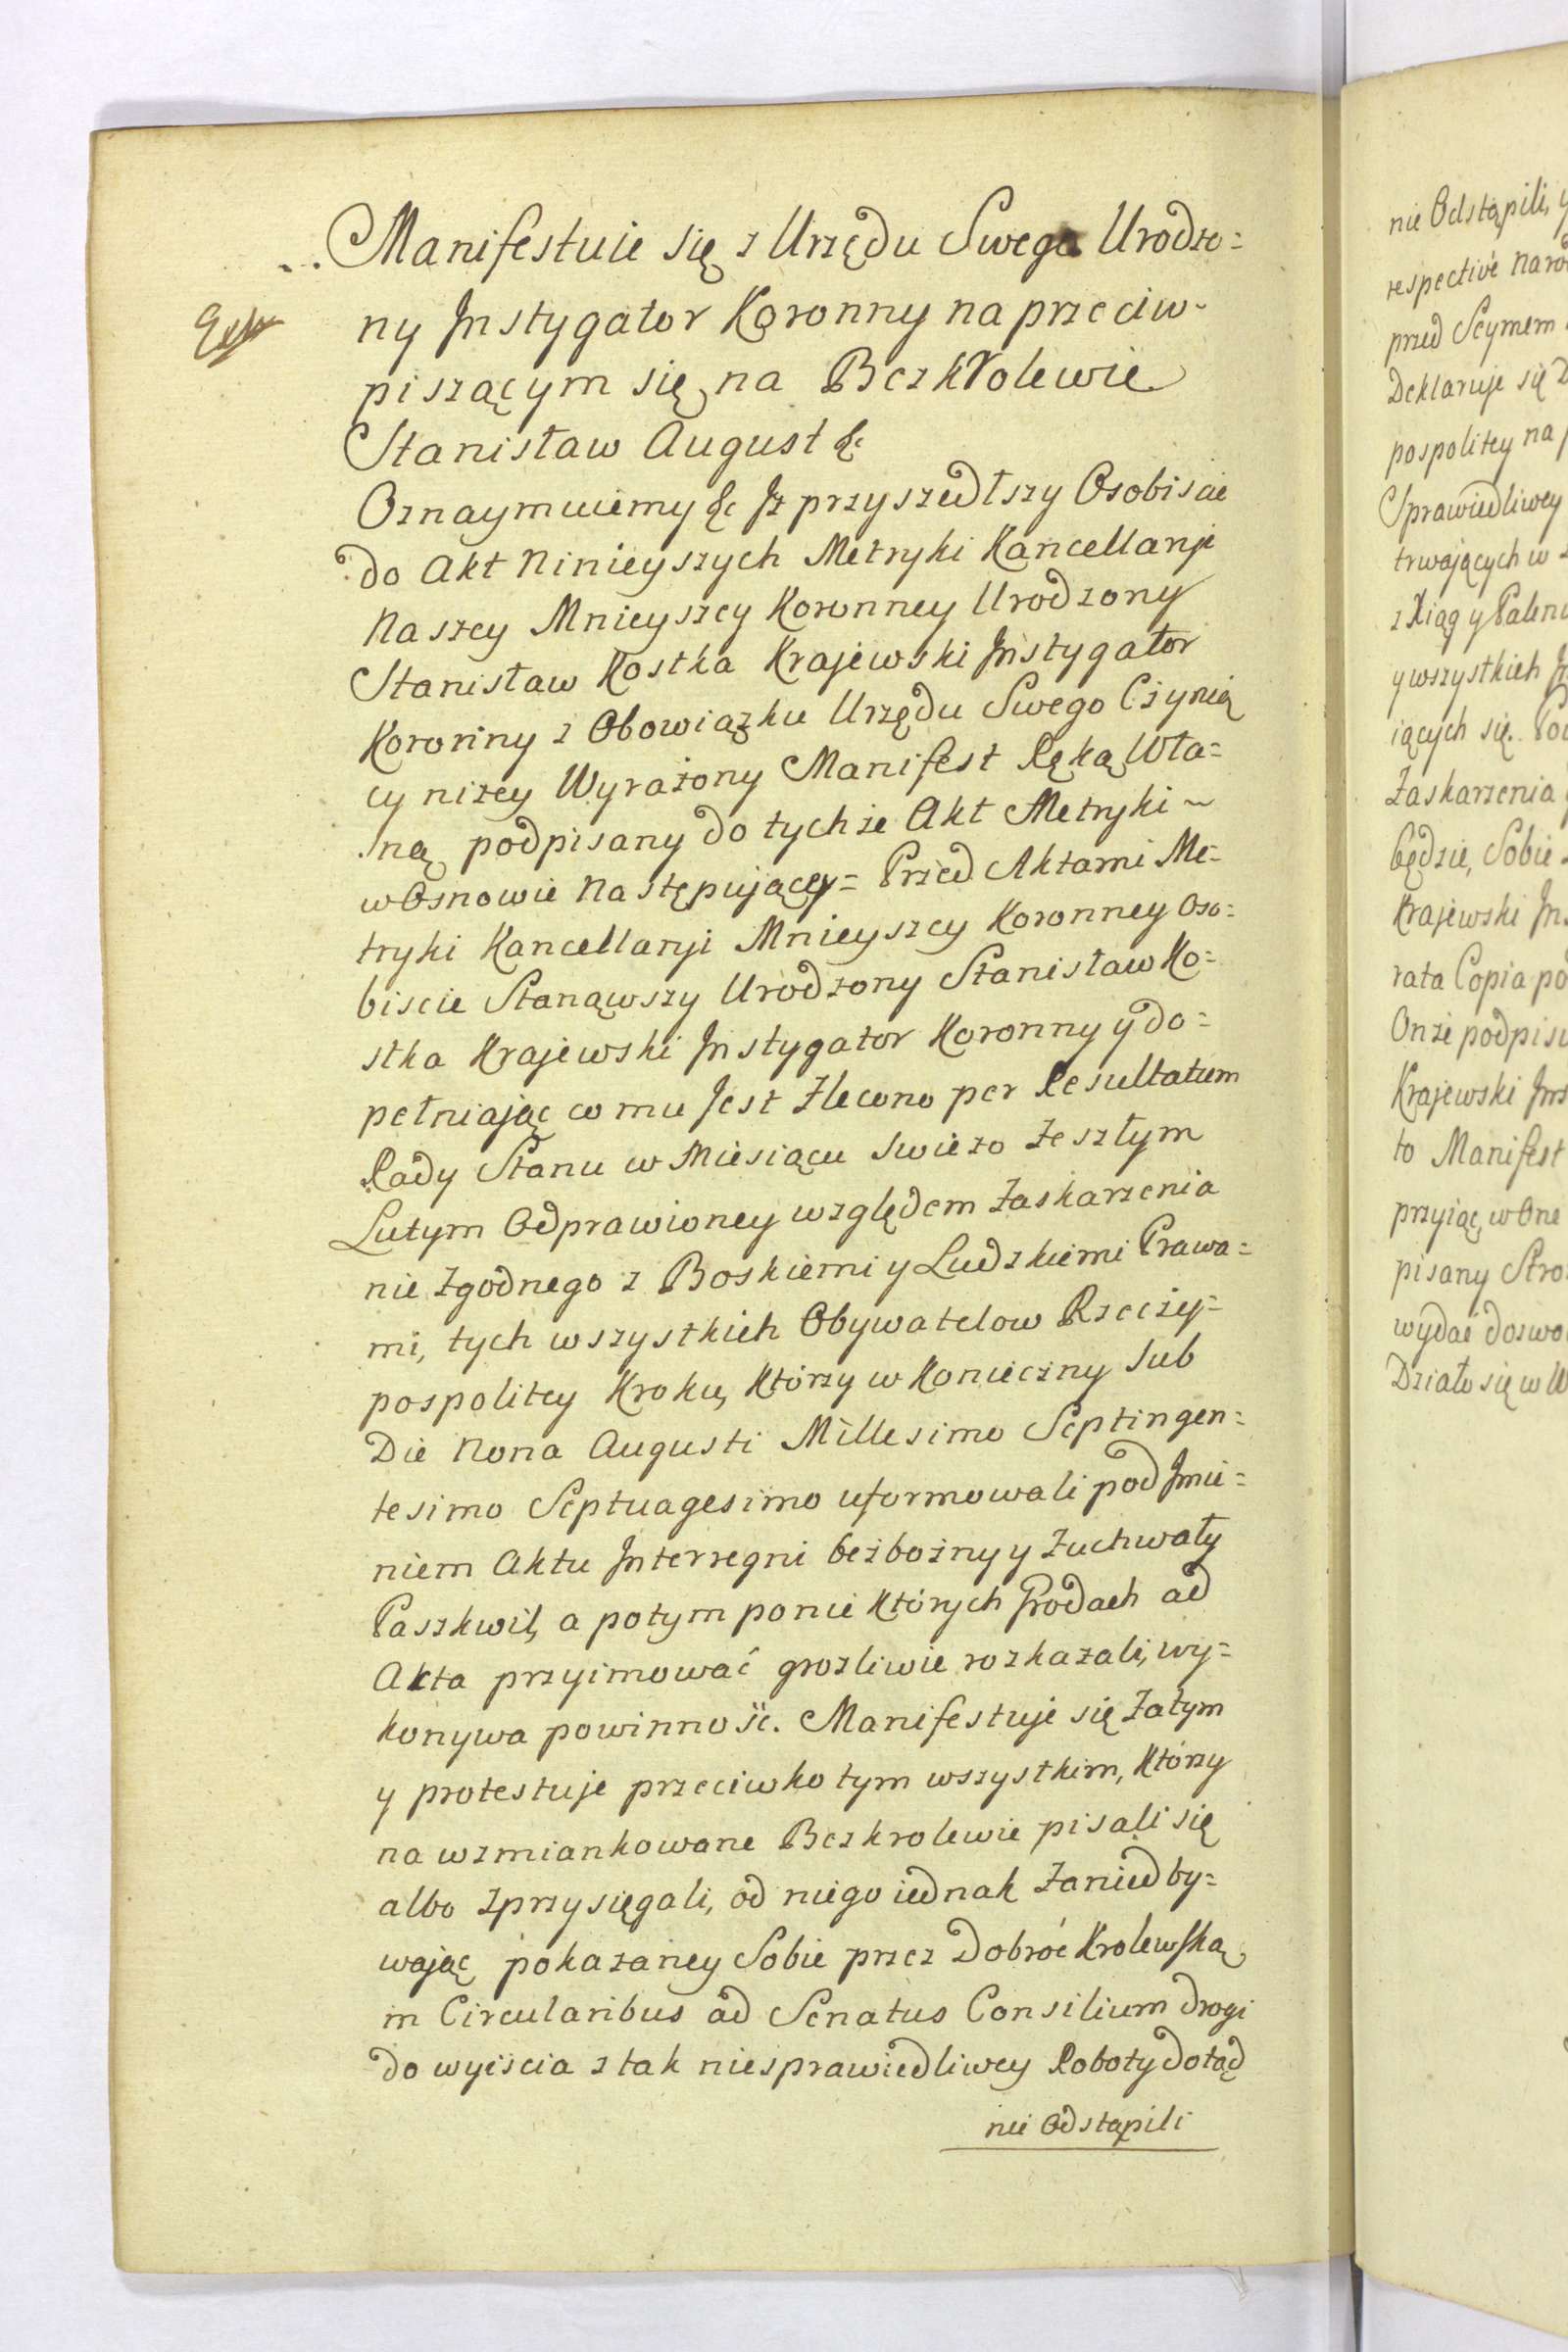 Manifestuie się z Urzędu Swego Urodzo=
ny Instygator Koronny na przeciw-
piszącym się na Bezkrolewie
Stanisław August &c
Oznaymuiemy &c Iż przyszedłszy Osobiscie
do Akt Ninieyszych Metryki Kancellaryi
Naszey Mnieyszey Koronney Urodzony
Stanisław Kostka Krajewski Instygator
Koronny z Obowiązku Urzędu Swego Czynią
cy niżey Wyrażony Manifest Ręką Wła=
sną podpisany do tychże Akt Metryki ~
w Osnowie Następującey= Przed Aktami Me=
tryki Kancellaryi Mnieyszey Koronney Oso=
biscie Stanąwszy Urodzony Stanisław Ko=
stka Krajewski Instygator Koronny y do=
pełniając co mu Jest Zlecono per Resultatum
Rady Stanu w Miesiącu swiezo zeszłym
Lutym Odprawioney względem Zaskarzenia
nie zgodnego z Boskiemi y Ludzkiemi Prawa=
mi, tych wszystkich Obywatelow Rzeczy=
pospolitey Kroku, Którzy w Konieczny sub
Die Nona Augusti Millesimo Septingen=
tesimo Septuagesimo uformowali pod Imie=
niem Aktu Interregni bezbożny y Zuchwały
Paszkwil, a potym po nie Których Grodach ad
Akta przyimować grozliwie rozkazali, wy=
konywa powinność. Manifestuje się Zatym
y protestuje przeciwko tym wszystkim, Którzy
na wzmiankowane Bezkrolewie pisali się
albo zprzysięgali, od niego iednak Zaniedby=
wając pokazaney Sobie przez Dobroć Krolewską
in Circularibus ad Senatus Consilium drogi
do wyiscia z tak niesprawiedliwey Roboty dotąd
nie Odstąpili
nie Odstąpili, y
respectivè
przed Seymem
Deklaruje się
pospolitey na
Sprawiedliwey
trwających w
z Xiąg y
y wszystkich
iących się.
Zaskarzenia
będzie, Sobie
Krajewski
rata Copia
Onże
Krajewski
to Manifest
przyiąc, w One
pisany
wydać
Działo się w